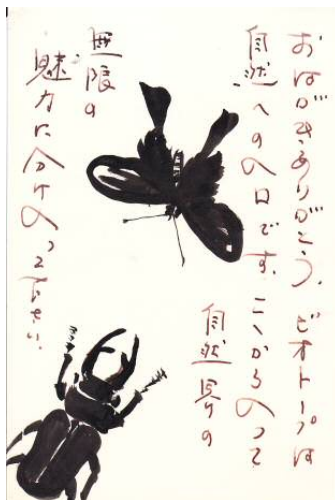 おはがきありがとう。ビオトープは
自然への入口です。ここから入って
自然界の
無限の
魅力に分け入って下さい。